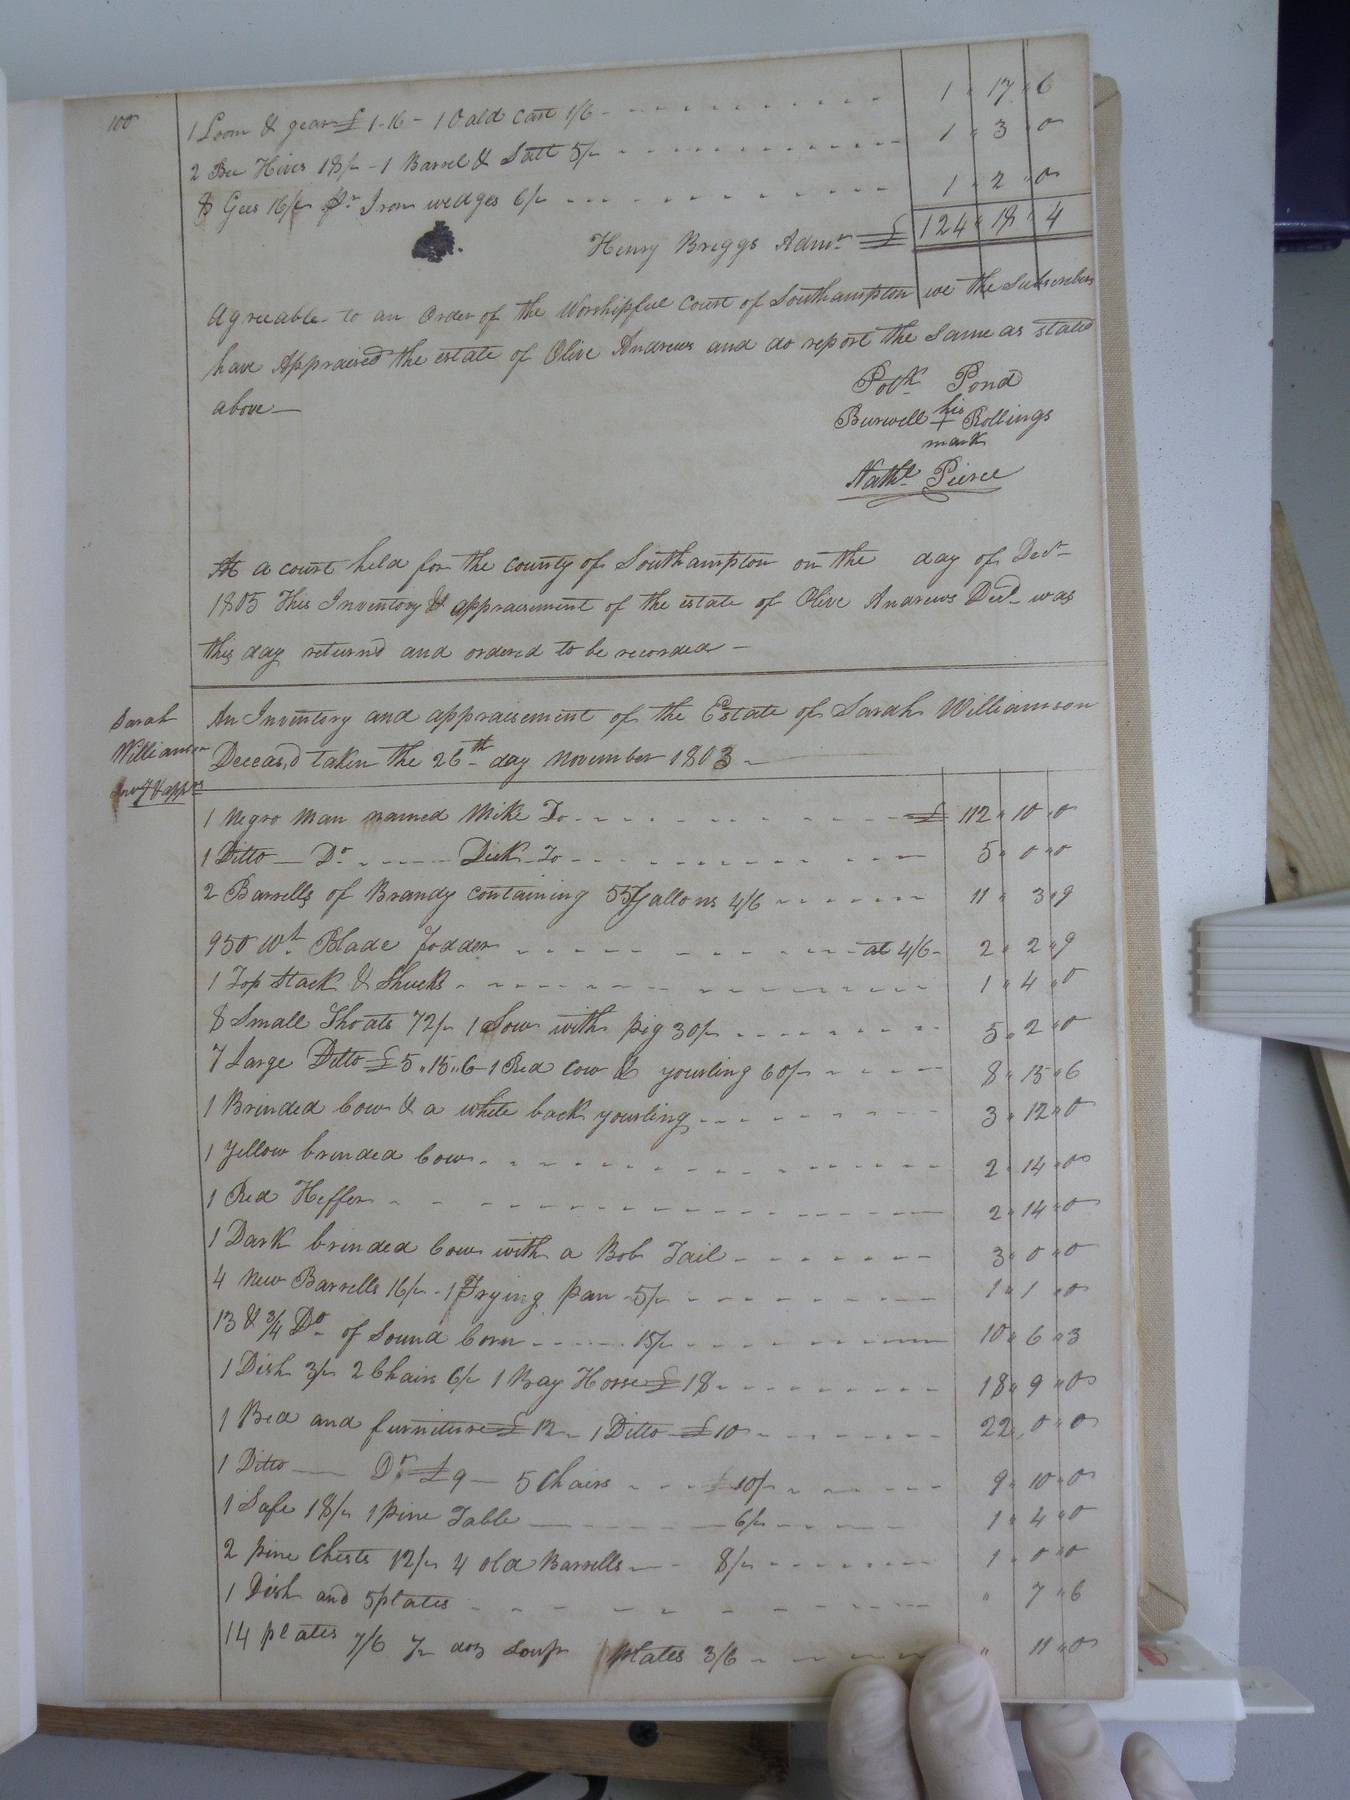 100
1 Loom & gear £1-16 - 1 Oald Cart 1/6 - 1 " 17 " 6
2 Bee Hives 18/- - 1 Barrel & Salt 5/- 1 " 3 " 0
8 Gees 16/- Pr Iron wedges 6/- 1 " 2 " 0
Henry Briggs Admr £ 124 " 18 " 4
Agreeable to an Order of the Worshipful Court of Southampton we the Subscribers
have Appraised the estate of Olive Andrews and do report the Same as stated
above —
Potk Pond
his
Burwell + Rollings
mark
Nathl Pierce
At a court held for the county of Southampton on the day of Decr
1805 This Inventory & appraisement of the estate of Olive Andrews Decd was
this day returnd and ordered to be recorded —
Sarah
Williamson
Invy & apprt
An Inventory and appraisement of the Estate of Sarah Williamson
Deceasd taken the 26th day November 1803 -
1 Negro Man named Mike To £ 112 " 10 " 0
1 Ditto — Do - - - Dick To 5 " 0 " 0
2 Barrells of Brandy containing 55 Gallons 4/6 11 " 3 " 9
950 wt Blade Fodder at 4/6 2 " 2 " 9
1 Top Stack & Shucks 1 " 4 " 0
8 Small Shoats 72/- 1 Sow with pig 30/- 5 " 2 " 0
7 Large Ditto £5 " 15 " 6 - 1 Red Cow & yourling 60/- 8 " 15 " 6
1 Brinded Cow & a white back yourling 3 " 12 " 0
1 Yellow brinded Cow 2 " 14 " 0
1 Red Heffer 2 " 14 " 0
1 Dark brinded Cow with a Bob Tail 3 " 0 " 0
4 New Barrells 16/- - 1 Frying pan 5/- 1 " 1 " 0
13 & 3/4 Do of Sound Corn 15/- 10 " 6 " 3
1 Dish 3/- 2 Chairs 6/- 1 Bay Horse £18 18 " 9 " 0
1 Bed and furniture £12 - 1 Ditto £10 22 " 0 " 0
1 Ditto — Do £9 — 5 Chairs 10/- 9 " 10 " 0
1 Safe 18/- 1 pine Table 6/- 1 " 4 " 0
2 pine Chests 12/- 4 old Barrells 8/- 1 " 0 " 0
1 Dish and 5 plates " 7 " 6
14 plates 7/6 1/2 doz Soup plates 3/6 " 11 " 0